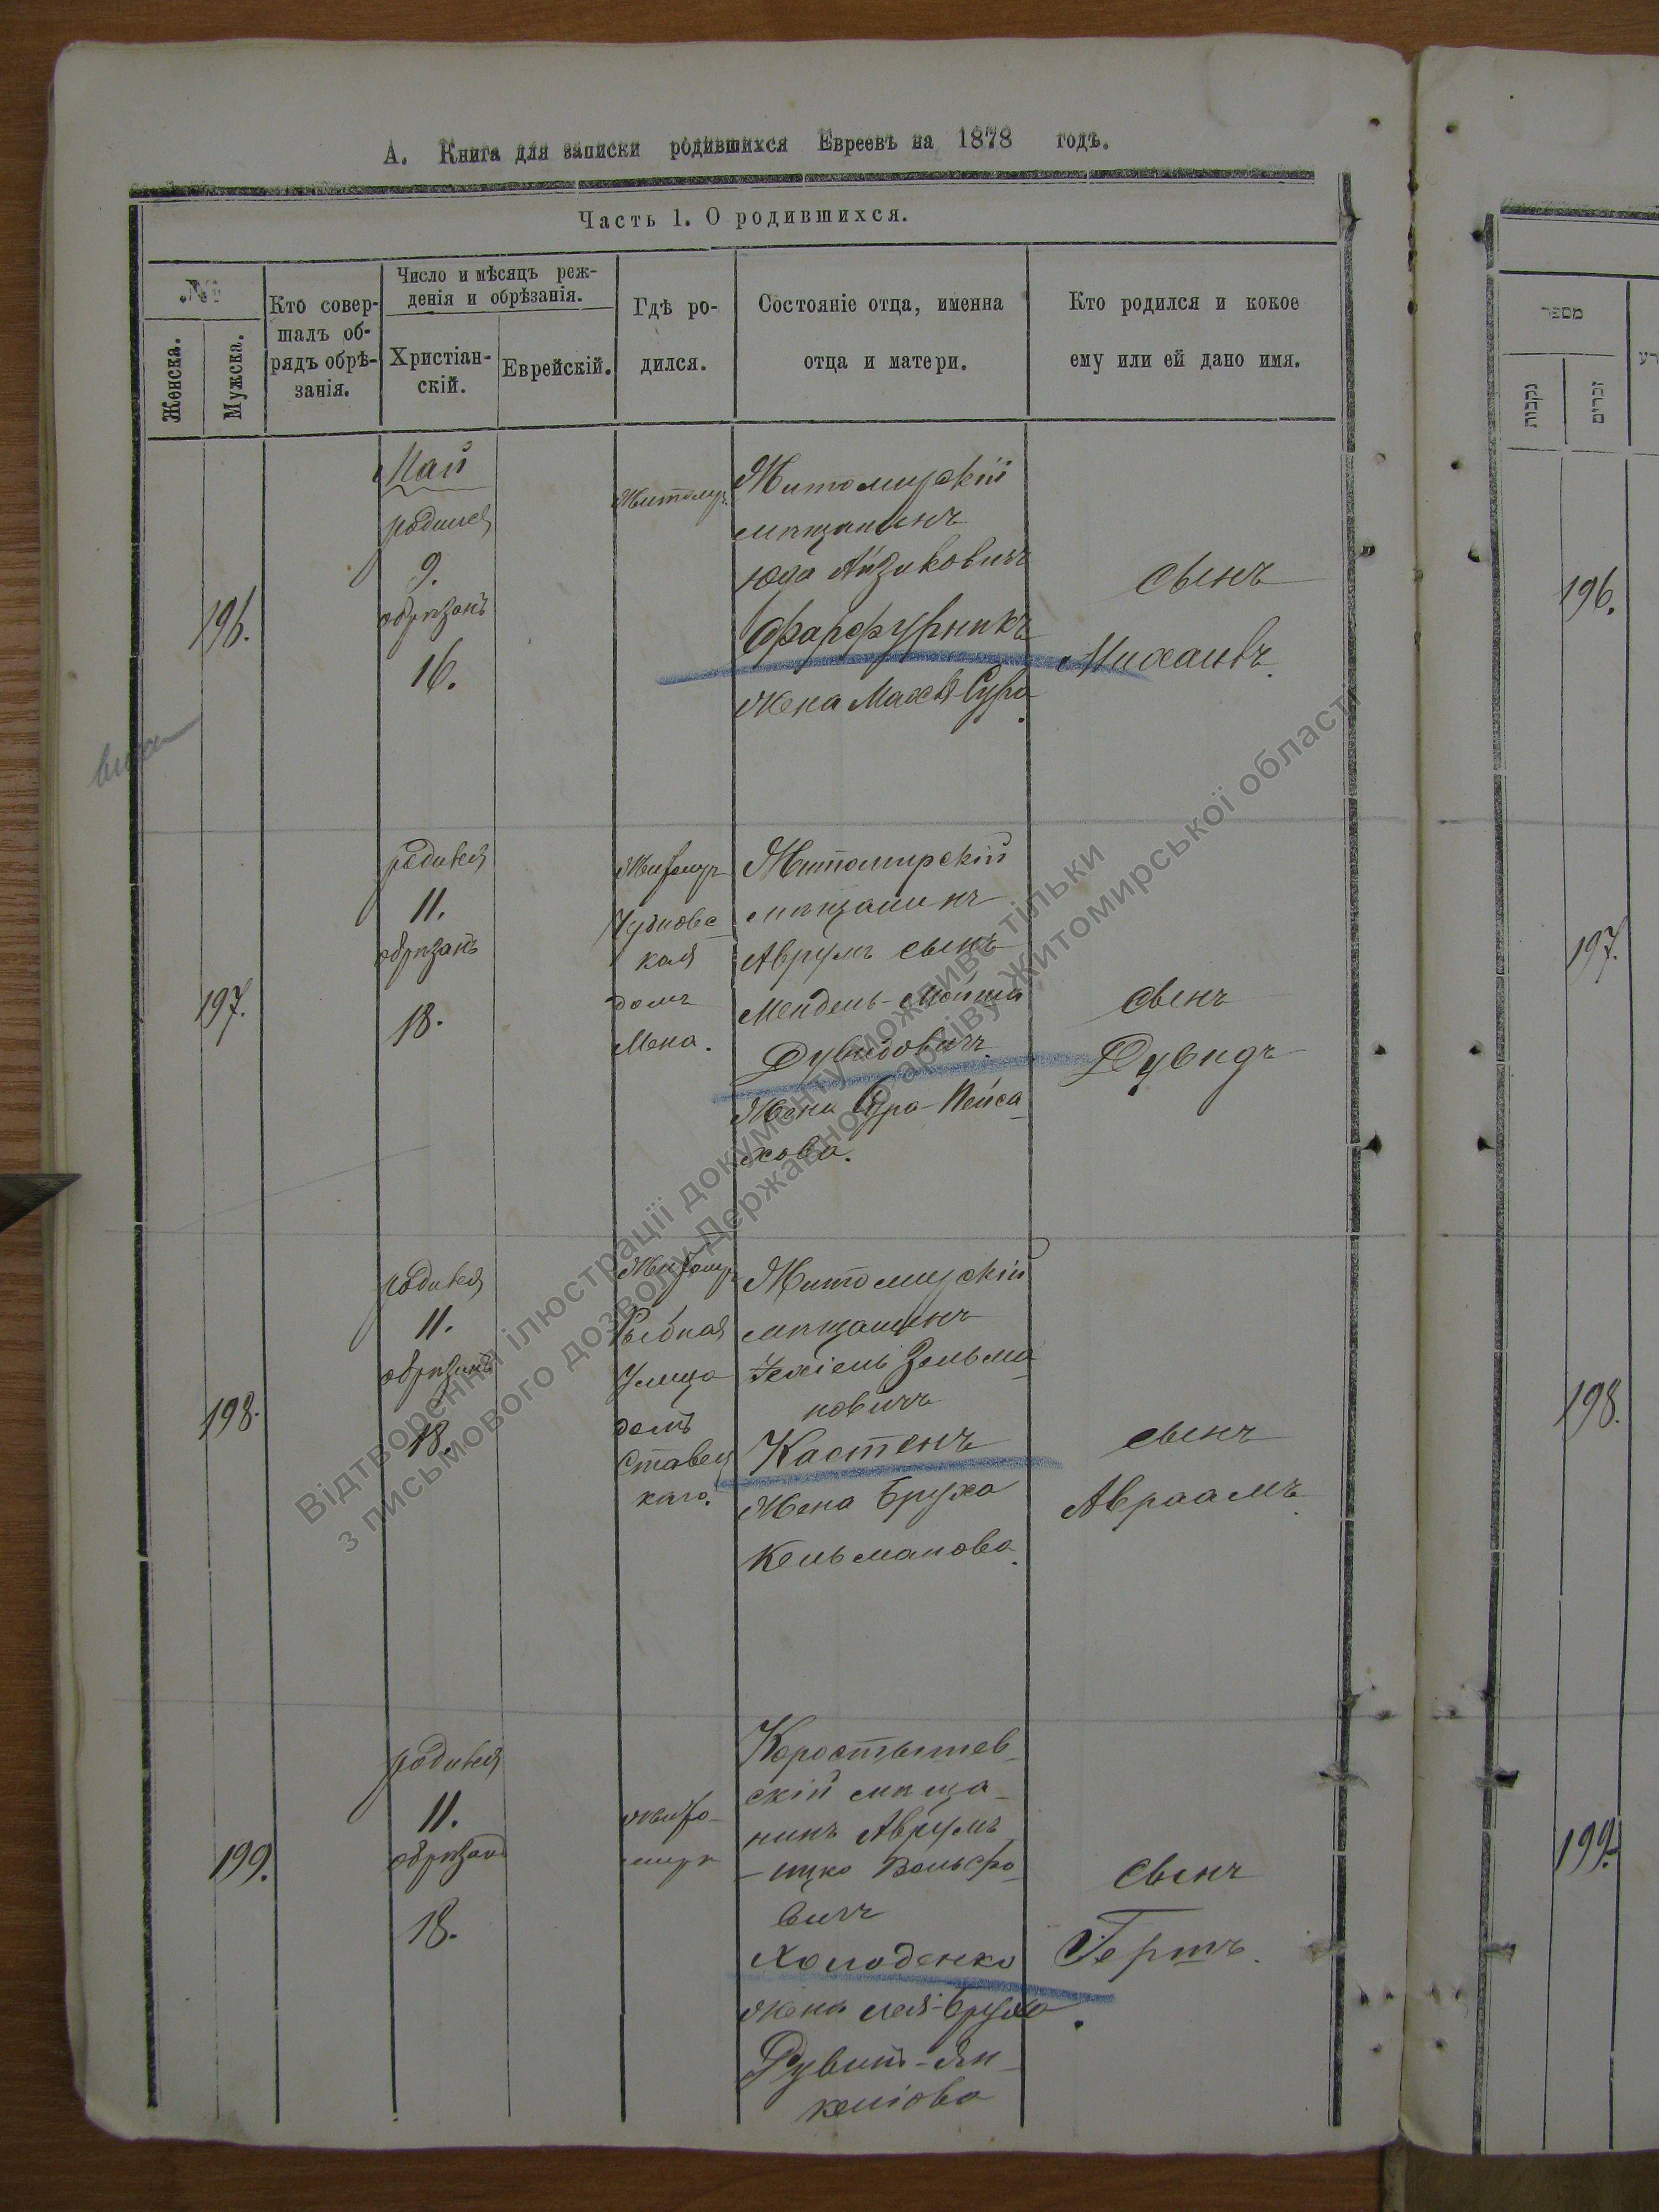 А. Книга для записки родившихся Евреевъ на 1878 годъ.
Часть 1. О родившихся.
№
Женска.
Мужска.
Кто совер-
шалъ об-
рядъ обрѣ-
занія.
Число и мѣсяцъ реж-
денія и обрѣзанія.
Христіан-
скій.
Еврейскій.
Гдѣ ро-
дился.
Состояніе отца, именна
отца и матери.
Кто родился и кокое
ему или ей дано имя.
מספר
נקבות
זכרים
196.
Май
родился
9.
обрѣзанъ
16.
Житомир.
Житомирскій
мѣщанинъ
Юда Айзиковичъ
Фарфурникъ
жена Махля Сура.
сынъ
Михаилъ.
196.
197.
родился
11.
обрѣзанъ
18.
Житомиръ
Чудновс-
кая
домъ
Мена.
Житомирскій
мѣщанинъ
Аврумъ сынъ
Мендель-Мойша
Дувидовичъ.
Жена Сура-Пейса-
хова.
сынъ
Дувидъ
197.
198.
родился
11.
обрѣзанъ
18.
Житомиръ
Рыбная
Улица
домъ
Ставец
каго.
Житомирскій
мѣщанинъ
Іехіель Зельма-
новичъ
Кастенъ
Жена Бруха
Кельманова.
сынъ
Авраамъ.
198.
199.
родился
11.
обрѣзанъ
18.
Жито-
миръ
Коростышев-
скій мѣща-
нинъ Аврумъ
-ицко Вольфо-
вичъ
Холоденко
жена Лея-Бруха.
Рувин-Ян-
келіова
сынъ
Гершъ.
199.
Відтворення ілюстрації документу можливе тільки
з письмового дозволу Державного архіву Житомирської області